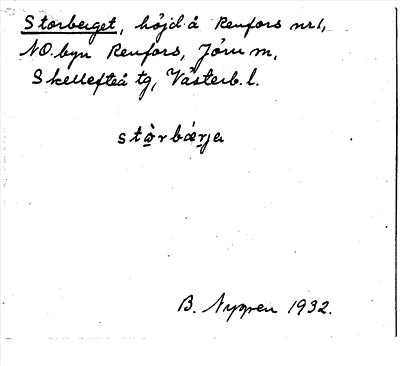 Storberget, höjd å Renfors nr 1,
NO. byn Renfors, Jörn m,
Skellefteå tg, Västerb. l.
stò̱rbǽrja
B. Nyppen 1932.